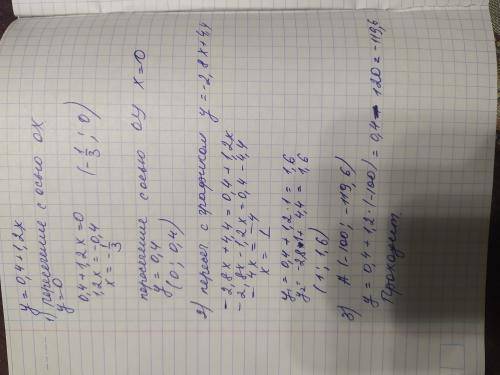 y = 0,4 + 1,2x
1) пересечение с осью ОХ
y = 0
0,4 + 1,2x = 0
1,2x = -0,4
x = -1/3
(-1/3 ; 0)
пересечение с осью ОУ x = 0
y = 0,4
(0 ; 0,4)
2) пересеч с графиком y = -2,8x + 4,4
-2,8x + 4,4 = 0,4 + 1,2x
-2,8x - 1,2x = 0,4 - 4,4
-4x = -4
x = 1
y₁ = 0,4 + 1,2 · 1 = 1,6
y₂ = -2,8 · 1 + 4,4 = 1,6
(1 ; 1,6)
3) A (-100 ; -119,6)
y = 0,4 + 1,2 · (-100) = 0,4 - 120 = -119,6
Проходит